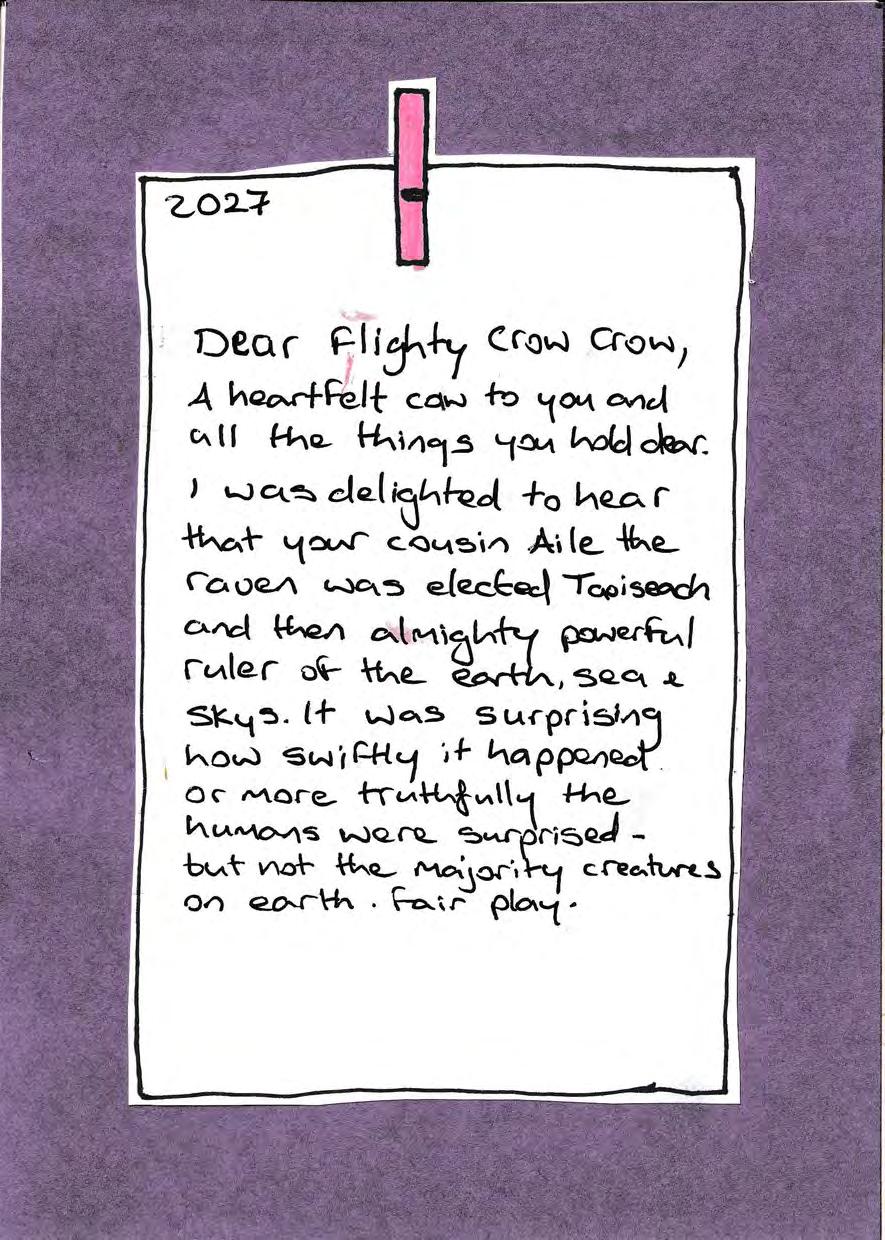 2027
Dear Flighty Crow Crow,
A heartfelt caw to you and
all the things you hold dear.
I was delighted to hear
that your cousin Aile the
raven was elected Taoiseach
and then almighty powerful
ruler of the earth, sea &
skys. It was surprising
how swiftly it happened.
or more truthfully the
humans were surprised -
but not the majority creatures
on earth. Fair play.